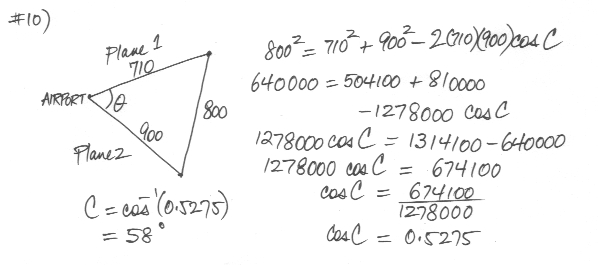 #10)
Plane 1
710
AIRPORT
θ
800
900
Plane 2
C = cos⁻¹(0.5275)
= 58°
800² = 710² + 900² - 2(710)(900)cos C
640000 = 504100 + 810000
-1278000 cos C
1278000 cos C = 1314100 - 640000
1278000 cos C = 674100
cos C = 674100
1278000
cos C = 0.5275